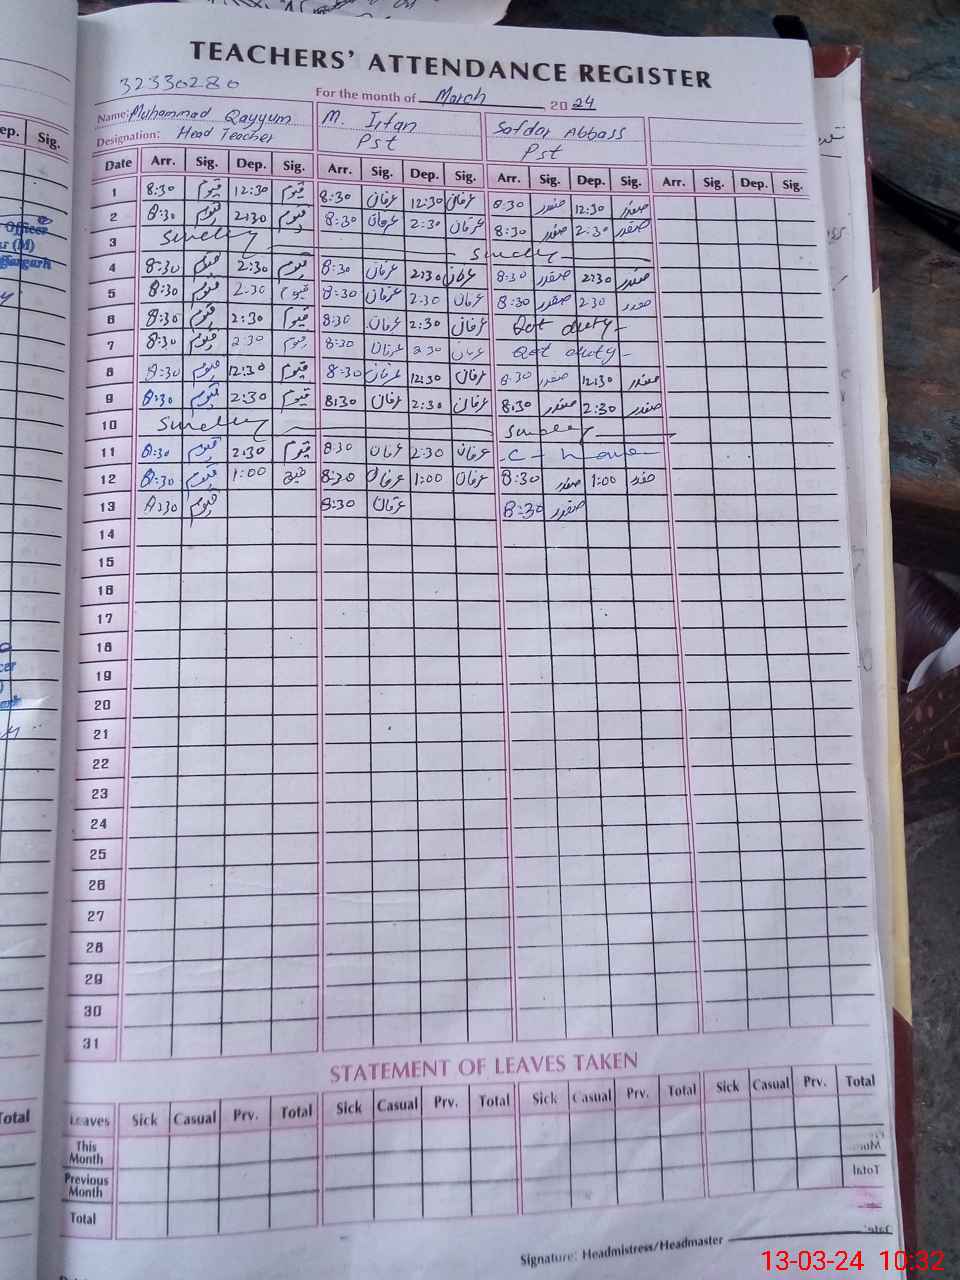 TEACHERS' ATTENDANCE REGISTER
32330280
For the month of March 2024
Name: Muhammad Qayyum M. Irfan Safdar Abbass
Designation: Head Teacher Pst Pst
Date Arr. Sig. Dep. Sig. Arr. Sig. Dep. Sig. Arr. Sig. Dep. Sig. Arr. Sig. Dep. Sig.
1 8:30 قیوم 12:30 قیوم 8:30 عرفان 12:30 عرفان 8:30 صفدر 12:30 صفدر
2 8:30 قیوم 2:30 قیوم 8:30 عرفان 2:30 عرفان 8:30 صفدر 2:30 صفدر
3
4 8:30 قیوم 2:30 قیوم 8:30 عرفان 2:30 عرفان 8:30 صفدر 2:30 صفدر
5 8:30 قیوم 2:30 قیوم 8:30 عرفان 2:30 عرفان 8:30 صفدر 2:30 صفدر
6 8:30 قیوم 2:30 قیوم 8:30 عرفان 2:30 عرفان duty
7 8:30 قیوم 2:30 قیوم 8:30 عرفان 2:30 عرفان duty
8 8:30 قیوم 12:30 قیوم 8:30 عرفان 12:30 عرفان 8:30 صفدر 12:30 صفدر
9 8:30 قیوم 2:30 قیوم 8:30 عرفان 2:30 عرفان 8:30 صفدر 2:30 صفدر
10
11 8:30 قیوم 2:30 قیوم 8:30 عرفان 2:30 عرفان
12 8:30 قیوم 1:00 8:30 عرفان 1:00 عرفان 8:30 صفدر 1:00 صفدر
13 8:30 قیوم 8:30 عرفان 8:30 صفدر
14
15
16
17
18
19
20
21
22
23
24
25
26
27
28
29
30
31
STATEMENT OF LEAVES TAKEN
Leaves Sick Casual Prv. Total Sick Casual Prv. Total Sick Casual Prv. Total Sick Casual Prv. Total
This Month
Previous Month
Total
Signature: Headmistress/Headmaster
13-03-24 10:32